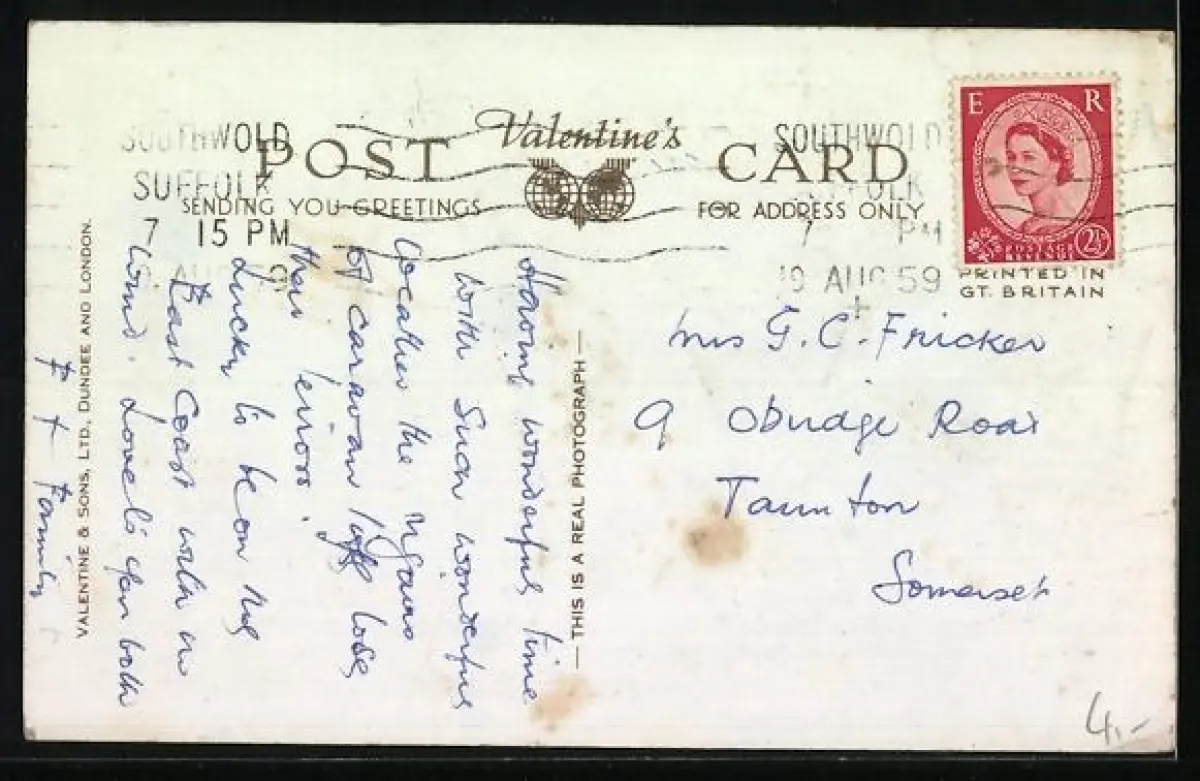 SOUTHWOLD
SUFFOLK
7 15 PM
AUG 59
Valentine's
POST CARD
SENDING YOU GREETINGS
FOR ADDRESS ONLY
SOUTHWOLD
FOLK
7 PM
19 AUG 59
E R
POSTAGE
REVENUE
2½
PRINTED IN
GT. BRITAIN
Having wonderful time
with such wonderful
weather the
of caravan life lose
their
Lucky to be on the
East Coast with no
wind. Love to you both
F + Family
VALENTINE & SONS, LTD., DUNDEE AND LONDON.
— THIS IS A REAL PHOTOGRAPH —
Mrs G. C. Fricker
9 Obridge Road
Taunton
Somerset
4,-